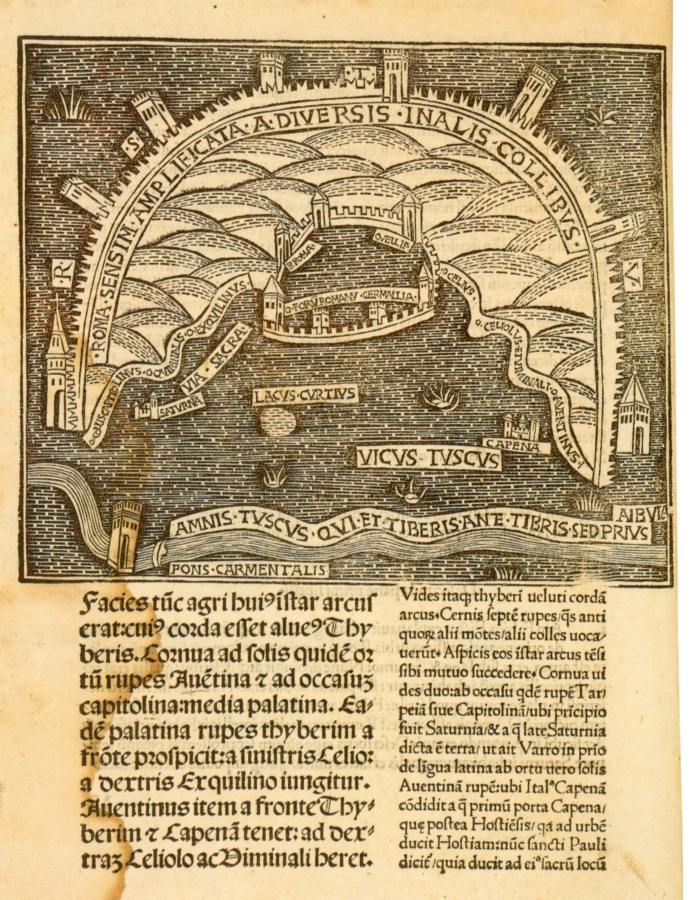 S
P
Q
R
ROMA·SENSIM·AMPLIFICATA·A·DIVERSIS·INALIS·COLLIBVS·
ROMA
VELIA
O·FORV̄ROMANV̄·GERMALLIA·
VIA·SACRA
SATVRNA
LACVS·CVRTIVS
CAPENA
VICVS·TVSCVS
AMNIS·TVSCVS·QVI·ET·TIBERIS·ANTE·TIBRIS·SED PRIVS
ALBVLA
PONS·CARMENTALIS
Facies tūc agri huiꝰ īstar arcus
erat:cuiꝰ corda esset alueꝰ Thy
beris. Cornua ad solis quidē or
tū rupes Auētina ⁊ ad occasuꝫ
capitolina:media palatina. Ea⸗
dē palatina rupes thyberim a
frōte prospicit:a sinistris Celio:
a dextris Exquilino iungitur.
Auentinus item a fronte Thy⸗
berim ⁊ Capenā tenet: ad dex⸗
traꝫ Celiolo ac Viminali heret.
Vides itaqꝫ thyberī ueluti cordā
arcus. Cernis septē rupes/q̄s anti
quoꝝ alii mōtes/alii colles uoca⸗
uerūt. Aspicis eos īstar arcus tēsi
sibi mutuo succedere. Cornua ui
des duo:ab occasu qdē rupē Tar/
peiā siue Capitolinā/ubi pricipio
fuit Saturnia/& a q̄ late Saturnia
dicta ē terra/ut ait Varro in prīo
de līgua latina ab ortu uero solis
Auentinā rupē:ubi Italꝰ Capenā
cōdidit a q̄ primū porta Capena/
quę postea Hostiēsis/qa ad urbē
ducit Hostiam:nūc sancti Pauli
dicit/quia ducit ad eiꝰ sacrū locū